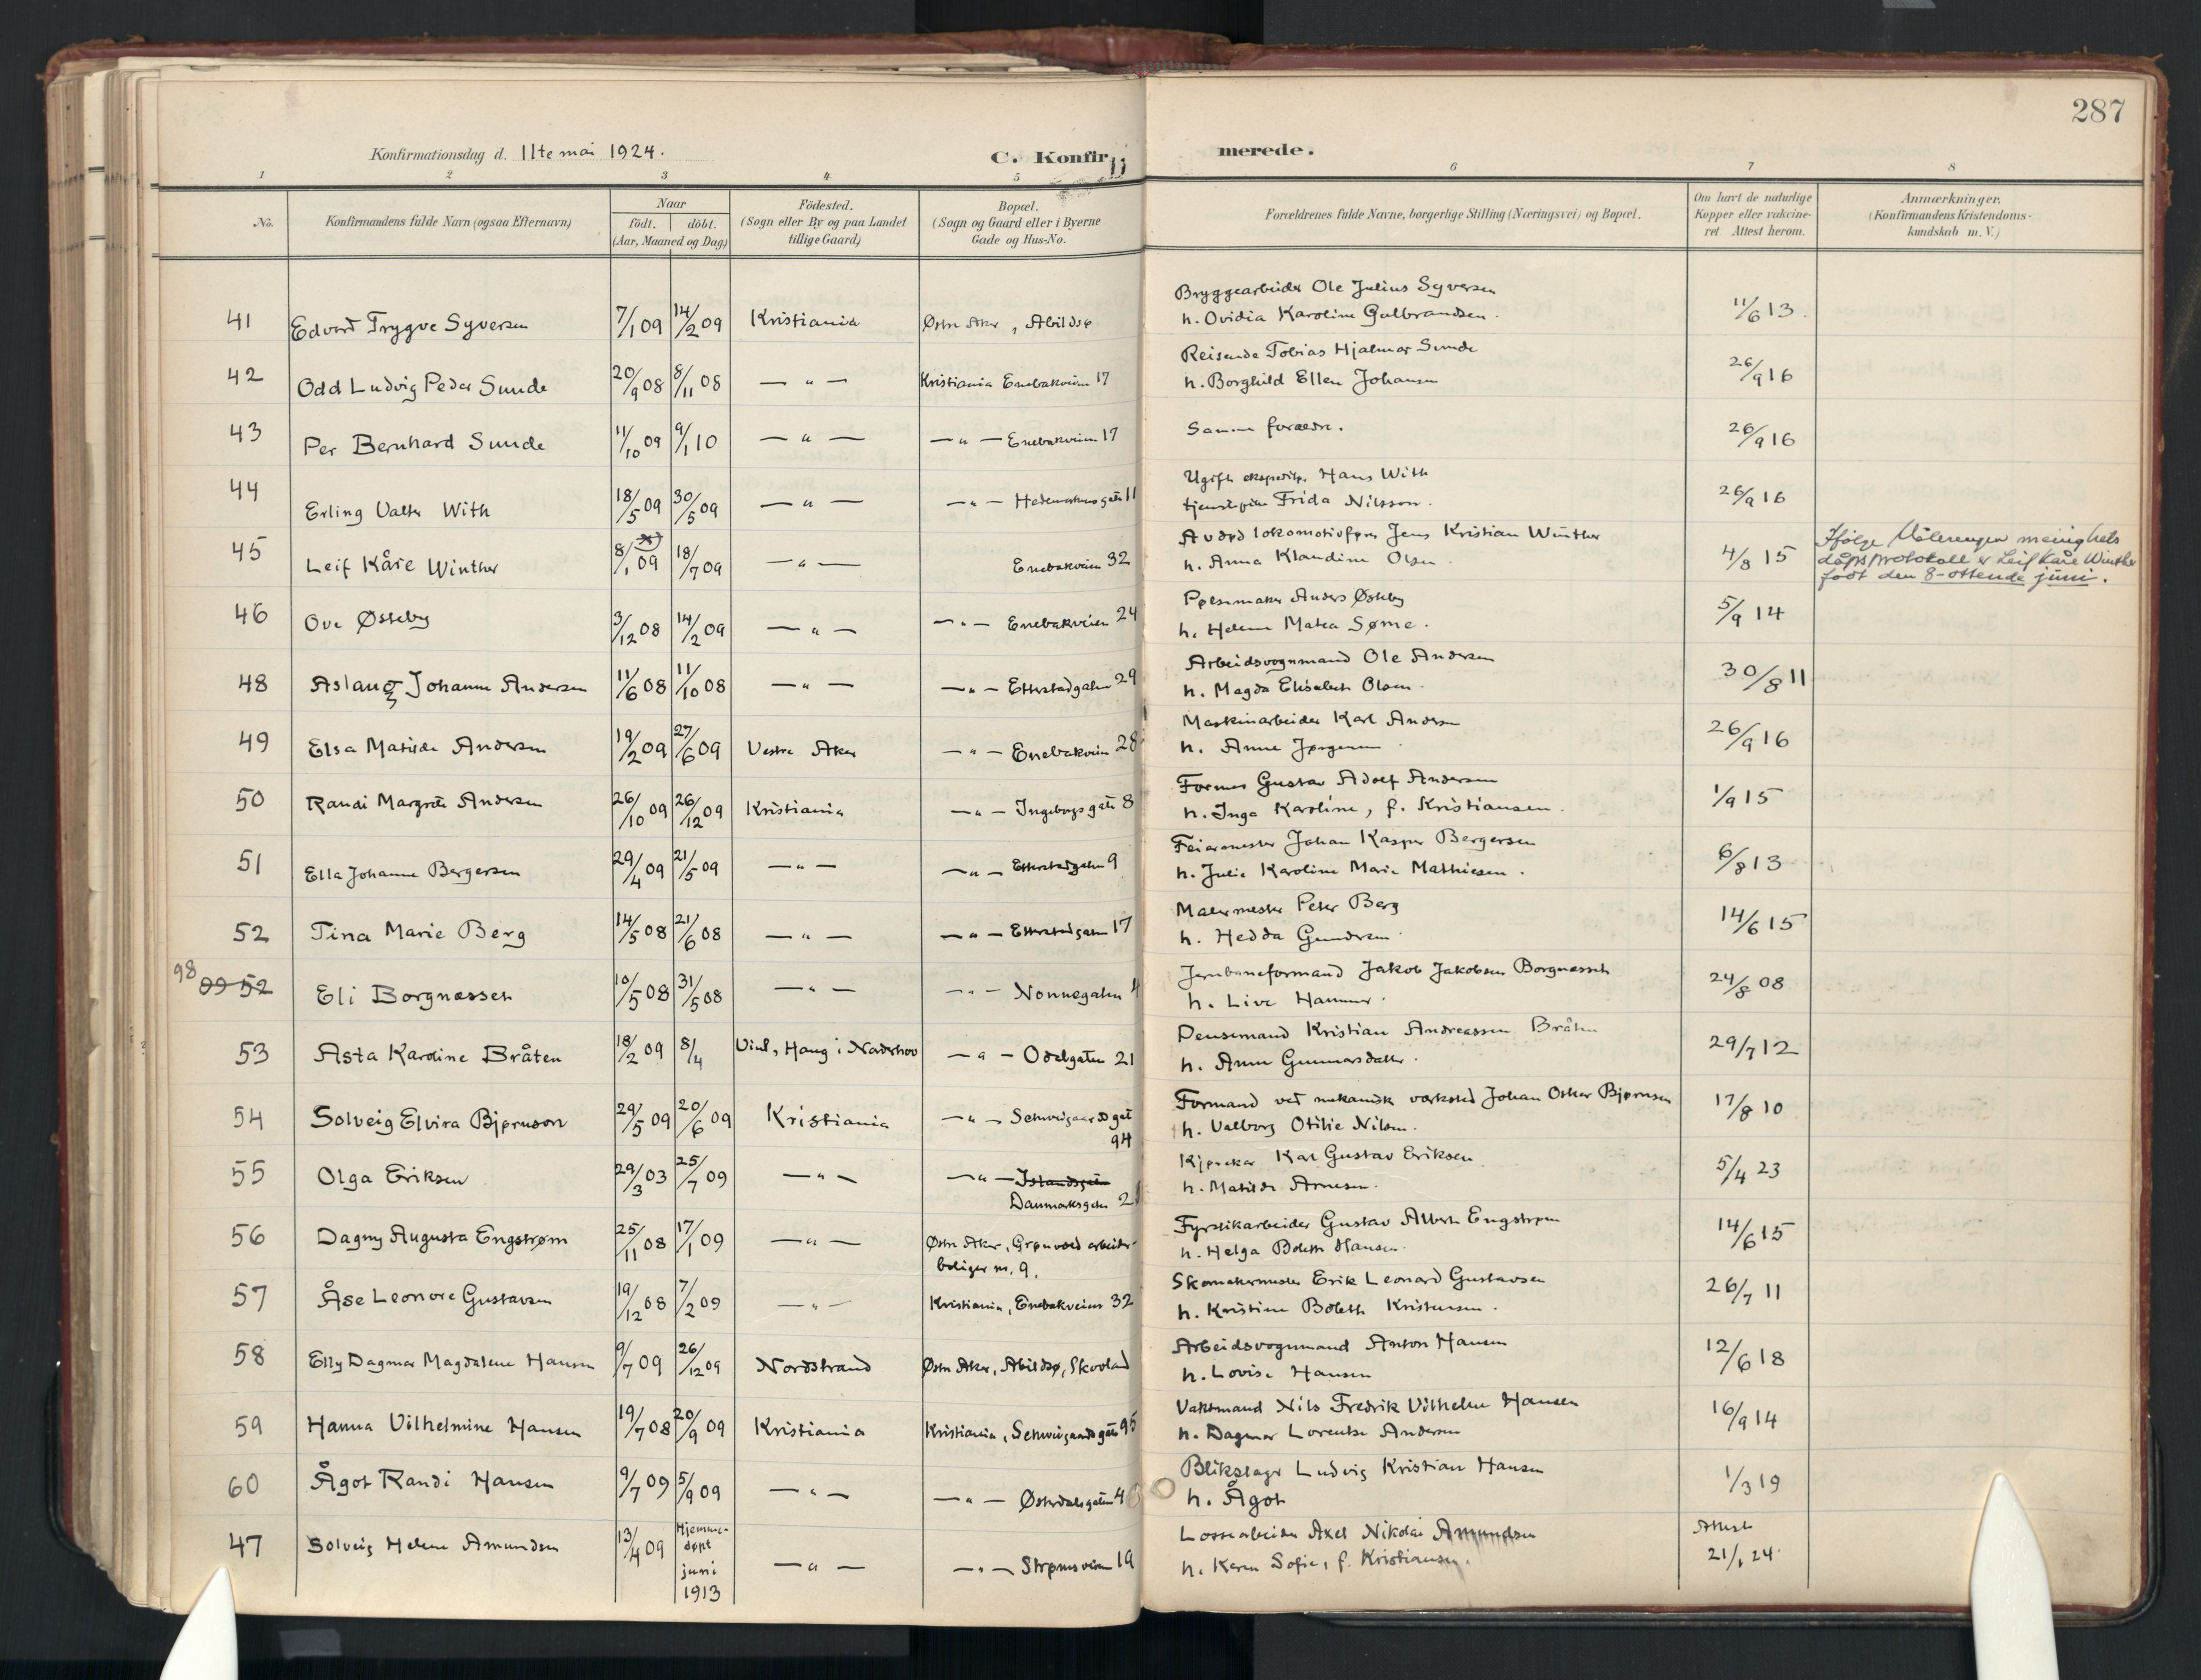 287
Konfirmationsdag d. 11te mai 1924.
C. Konfir
merede.
1 2 3 4 5 6 7 8
No.
Konfirmandens fulde Navn (ogsaa Efternavn)
Naar
födt. döbt.
(Aar, Maaned og Dag)
Födested.
(Sogn eller By og paa Landet
tillige Gaard)
Bopæl.
(Sogn og Gaard eller i Byerne
Gade og Hus-No.
Forældrenes fulde Navne, borgerlige Stilling (Næringsvei) og Bopæl.
Om havt de naturlige
Kopper eller vakcine-
ret. Attest herom.
Anmærkninger.
(Konfirmandens Kristendoms-
kundskab m. V.)
41 Edvard Trygve Syversen 7/1 09 14/2 09 Kristiania Østre Aker, Abildsø
Bryggearbeider Ole Julius Syversen
h. Ovidia Karoline Gulbrandsen. 11/6 13.
42 Odd Ludvig Peder Sunde 20/9 08 8/11 08 — " — Kristiania Enebakveien 17
Reisende Tobias Hjalmar Sunde
h. Borghild Ellen Johansen 26/9 16
43 Per Bernhard Sunde 11/10 09 9/1 10 — " — — " — Enebakveien 17
Samme forældre. 26/9 16
44 Erling Valter With 18/5 09 30/5 09 — " — — " — Hedemarksgate 11
Ugift Hans With
tjenestepike Frida Nilsson. 26/9 16
45 Leif Kåre Winther 8/1 09 18/7 09 — " — Enebakveien 32
Avdød lokomotivfører Jens Kristian Winther
h. Anna Klaudine Olsen 4/8 15
Ifølge Vålerengen menighets
dåpsprotokoll er Leif Kåre Winther
født den 8-ottende juni.
46 Ove Østeby 3/12 08 14/2 09 — " — — " — Enebakveien 24
Pølsemaker Anders Østeby
h. Helene Matea Sørne. 5/9 14
48 Aslaug Johanne Andersen 11/6 08 11/10 08 — " — — " — Etterstadgaten 29
Arbeidsvognmand Ole Andersen
h. Magda Elisabeth Olsen. 30/8 11
49 Elsa Matilde Andersen 19/2 09 27/6 09 Vestre Aker — " — Enebakveien 28
Maskinarbeider Karl Andersen
h. Anne Jørgensen. 26/9 16
50 Randi Margrete Andersen 26/10 09 26/12 09 Kristiania — " — Ingeborgs gate 8
Former Gustav Adolf Andersen
h. Inga Karoline, f. Kristiansen. 1/9 15
51 Ella Johanne Bergersen 29/4 09 21/5 09 — " — — " — Etterstadgaten 9
Feiermester Johan Kasper Bergersen
h. Julie Karoline Marie Mathiesen. 6/8 13
52 Tina Marie Berg 14/5 08 21/6 08 — " — — " — Etterstadgaten 17
Malermester Peter Berg
h. Hedda Gundersen. 14/6 15
98
52 Eli Borgnæsset 10/5 08 31/5 08 — " — — " — Nonnegaten 4
Jernbaneformand Jakob Jakobsen Borgnæsset
h. Live Hammer. 24/8 08
53 Asta Karoline Bråten 18/2 09 8/4 Viul, Haug i Norderhov — " — Odalgaten 21
Kristian Andreassen Bråten
h. Anne Gunnarsdatter. 29/7 12
54 Solveig Elvira Bjørnson 29/5 09 20/6 09 Kristiania — " — Schweigaards gat
94
Formand ved mekanisk værksted Johan Oskar Bjørnsen
h. Valborg Otilie Nilsen. 17/8 10
55 Olga Eriksen 29/3 03 25/7 09 — " — — " — Islandsgaten
Danmarksgaten 2
Karl Gustav Eriksen
h. Matilde Arnesen. 5/4 23
56 Dagny Augusta Engstrøm 25/11 08 17/1 09 — " — Østre Aker, Grønvold arbeider-
boliger nr. 9.
Fyrstikarbeider Gustav Albert Engstrøm
h. Helga Bolette Hansen. 14/6 15
57 Åse Leonore Gustavsen 19/12 08 7/2 09 — " — Kristiania, Enebakveien 32
Skomakermester Erik Leonard Gustavsen
h. Kristine Bolette Kristensen. 26/7 11
58 Elly Dagmar Magdalene Hansen 9/7 09 26/12 09 Nordstrand Østre Aker, Abildsø, Skovland
Arbeidsvognmand Anton Hansen
h. Lovise Hansen 12/6 18
59 Hanna Vilhelmine Hansen 19/7 08 20/9 09 Kristiania Kristiania, Schweigaards gate 95
Vaktmand Nils Fredrik Vilhelm Hansen
h. Dagmar Lorentse Andersen 16/9 14
60 Ågot Randi Hansen 9/7 09 5/9 09 — " — — " — Østerdalsgaten 4
Blikslager Ludvig Kristian Hansen
h. Ågot 1/3 19
47 Solveig Helene Amundsen 13/4 09 Hjemme-
døpt
juni
1913 — " — — " — Strømsveien 19
Lossearbeider Axel Nikolai Amundsen
h. Karen Sofie, f. Kristiansen. Attest
21/1 24.